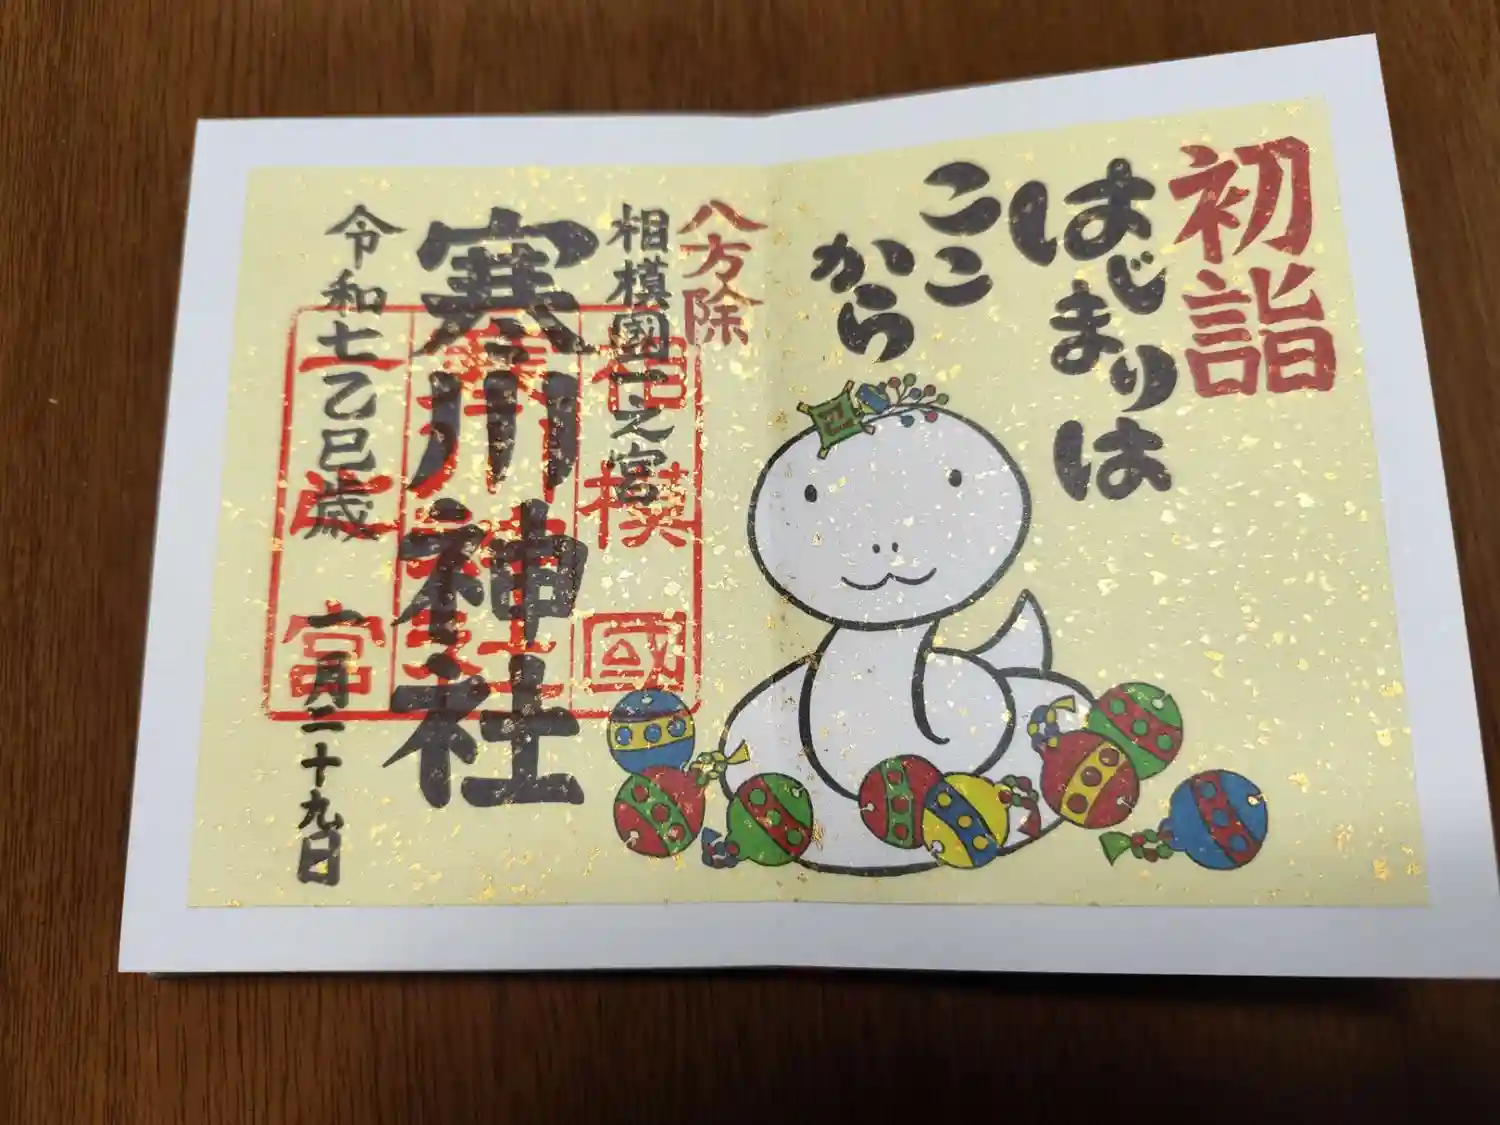 初詣
はじまりは
ここ
から
八方除
相模國一之宮
寒川神社
令和七乙巳歳
一月二十九日
相模國
寒川神社
一之宮